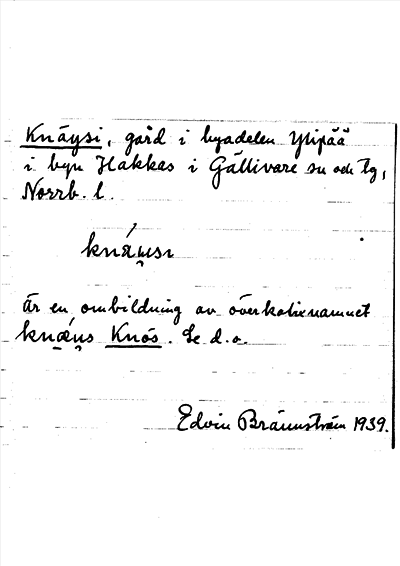 Knäysi, gård i byadelen Ylipää
i byn Hakkas i Gällivare sn och tg,
Norrb. l.
knæ̀u̯sı
Är en ombildning av överkalixnamnet
knæ̀u̯s Knös. Se d.o.
Edvin Brännström 1939.